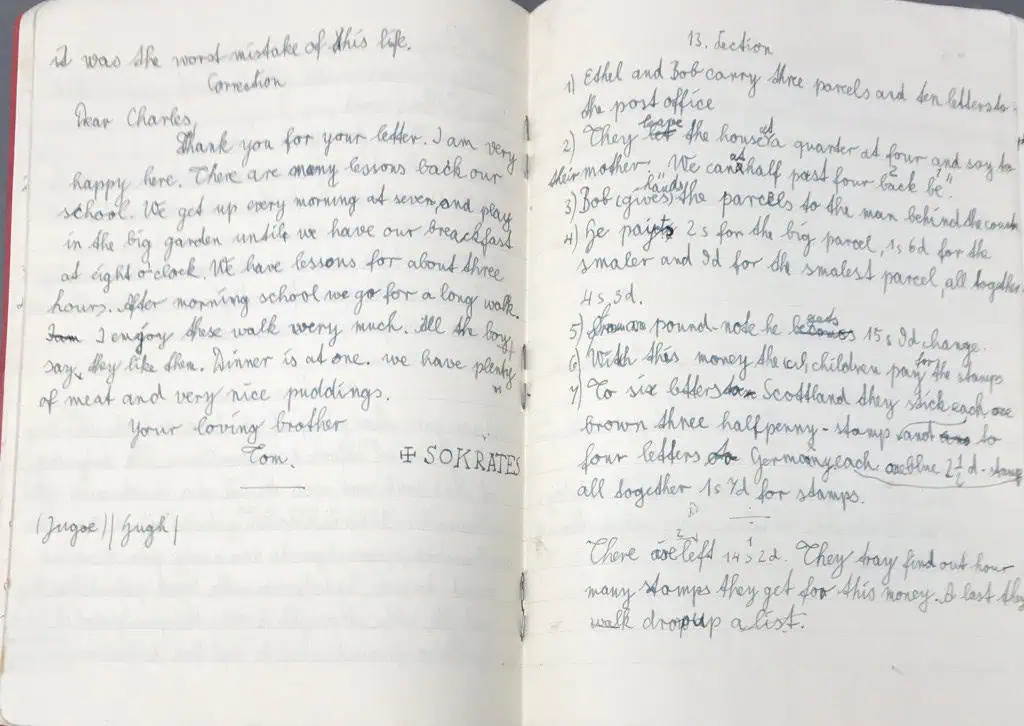 it was the worst mistake of this life.
Correction
Dear Charles,
Thank you for your letter. I am very
happy here. There are many lessons back our
school. We get up every morning at seven, and play
in the big garden until we have our breackfast
at eight o'clock. We have lessons for about three
hours. After morning school we go for a long walk.
I am I emjoy these walk wery much. All the boy
say, they like them. Dinner is at one. we have plenty
of meat and very nice puddings.
Your loving brother
Tom.
✠ SOKRATES
(Jugoe) | Hugh |
13. Section
1) Ethel and Bob carry three parcels and ten letters to
the post office
2) They let leave the house at a quarter at four and say to
their mother. "We can at half past four back be."
3) Bob (gives) hands the parcels to the man behind the counter
4) He pays 2 s for the big parcel, 1s 6d for the
smaler and 9d for the smalest parcel, all together
4 s, 3d.
5) pound-note he becomes gets 15 s 9d change.
6) With this money the children pay for the stamps
7) To six letters Scottland they stick each one
brown three halfpenny-stamp and to
four letters to Germany each one blue 2 1/2 d-stamp
all together 1s 7d for stamps.
There are left 14 s 2d. They tray find out hour
many stamps they get for this money. A last they
walk drop up a list.